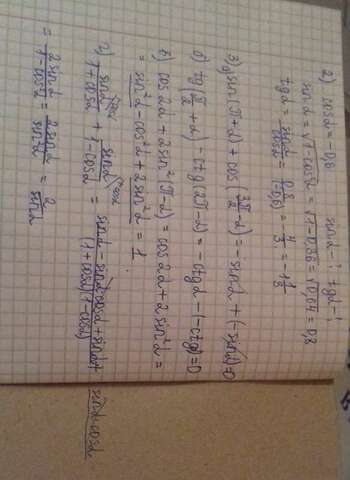 2) cosα = -0,8 sinα - ? tgα - ?
sinα √1-cos²α = √1-0,36 = √0,64 = 0,8
tgα = sinα/cosα = 0,8/(-0,6) = -4/3 = -1 1/3
3) а) sin(π+α) + cos(3π/2 - α) = -sinα + (-sinα)=0
б) tg(π/2 + α) - ctg(2π-α) = -ctgα - (-ctgα)=0
в) cos2α + 2sin²(π-α) = cos2α + 2sin²α =
= sin²α - cos²α + 2sin²α = 1
г) sinα/(1+cosα) + sinα/(1-cosα) = (sinα - sinα·cosα + sinα + sinα·cosα)/((1+cosα)(1-cosα))
= 2sinα/(1-cos²α) = 2sinα/sin²α = 2/sinα